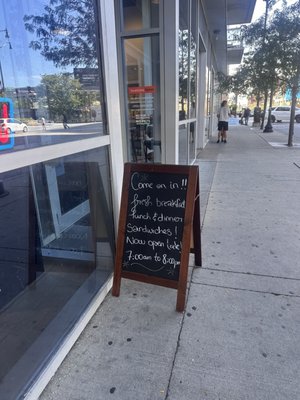 Come on in !!
fresh breakfast
lunch & dinner
Sandwiches !
Now open late!
7:00am to 8:00pm